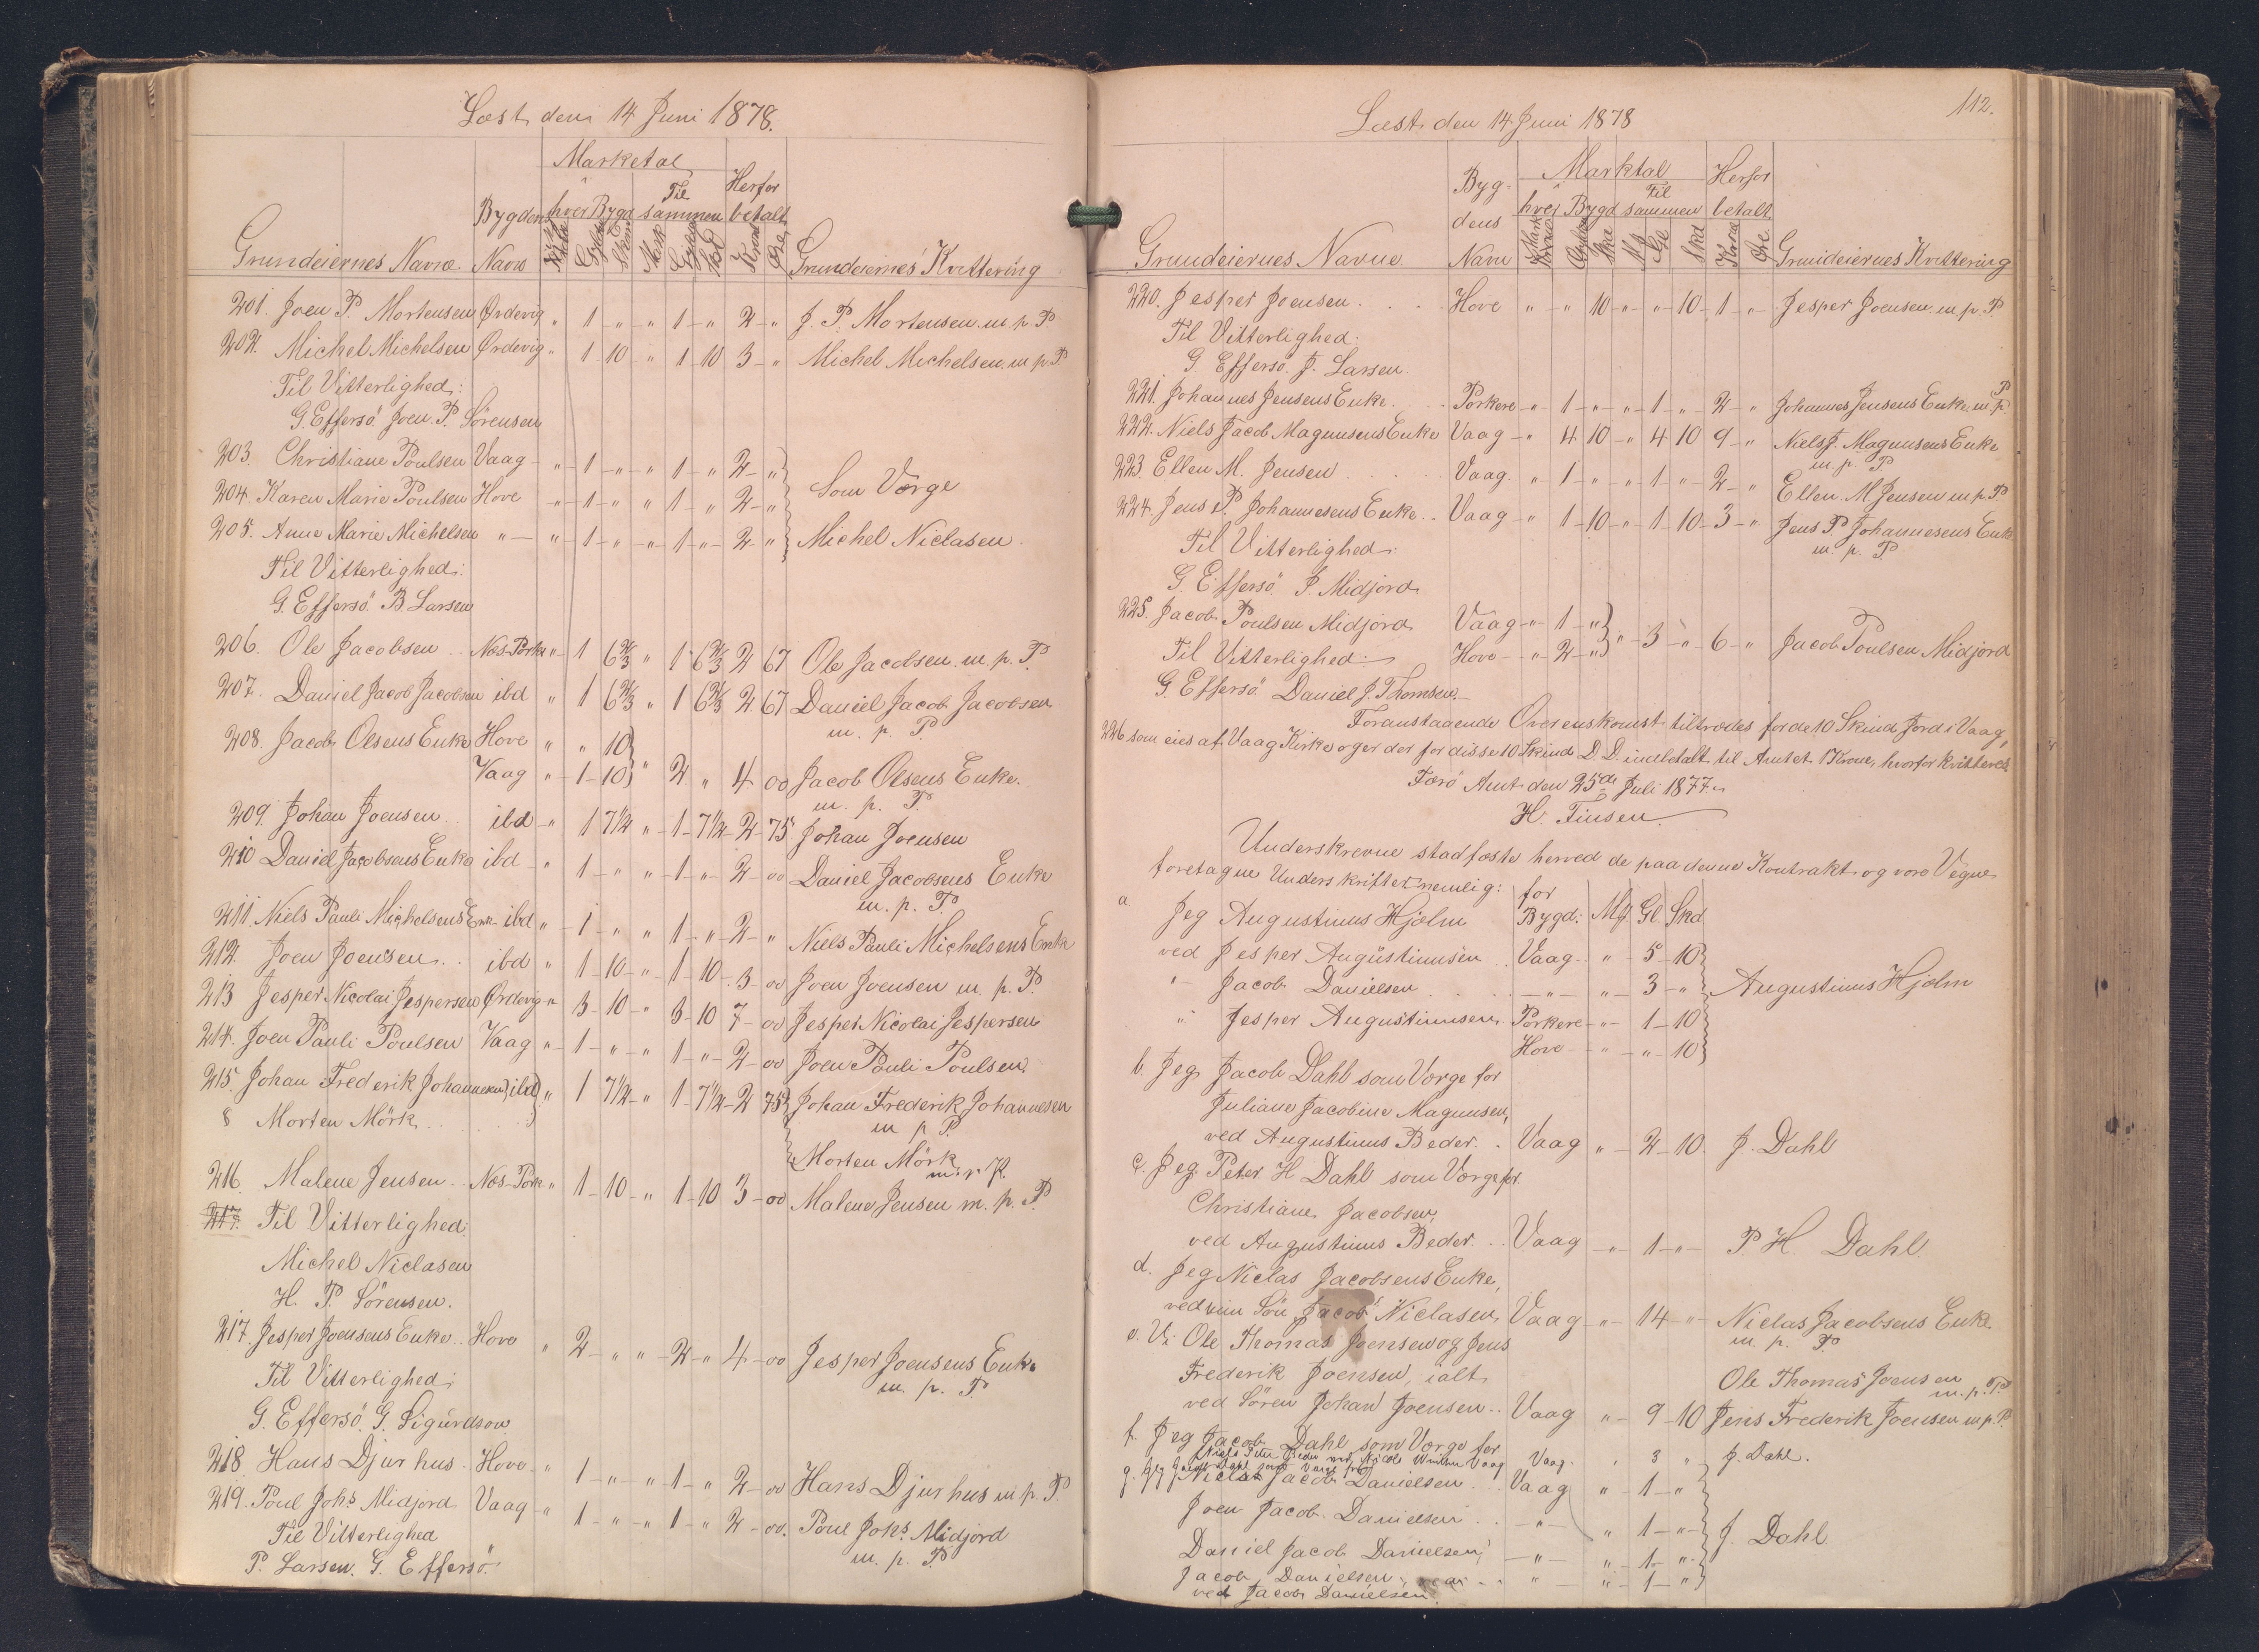 Læst den 14 Juni 1878.
Marketal
Til
Herfor
Bygdens hver Bygd sammen betalt
Grundeiernes Navne Navn Mark Gylden Skind Mark Gylden Skd Kroner Øre Grundeiernes Kvittering
201. Joen P. Mortensen Ørdevig " 1 - " - " 1 - " 2 - " J. P. Mortensen m p. P
202. Michel Michelsen Ørdevig " 1 - 10 " 1 10 3 - " Michel Michelsen m p. P.
Til Vitterlighed:
G. Effersö. Joen P. Sörensen
203. Christiane Poulsen Vaag - " - 1 - " - " 1 - " 2 - "
204. Karen Marie Poulsen Hove - " - 1 - " - " 1 - " 2 - " Som Værge
205. Anne Marie Michelsen " - " - 1 - " - " - 1 - " - 2 - " Michel Niclasen.
Til Vitterlighed:
G. Effersö. B. Larsen
206. Ole Jacobsen .. Næs-Porke " - 1 6 2/3 " 1 6 2/3 2 67 Ole Jacobsen. m. p. P.
207. Daniel Jacob Jacobsen ibd " 1 6 2/3 " 1 6 2/3 2 67 Daniel Jacob Jacobsen
m. p. P
208. Jacob Olsens Enke Hove " " 10
Vaag " - 1 - 10 " 2 " 4 00 Jacob Olsens Enke.
m. p. P.
209. Johan Joensen .. ibd - " 1 7 1/2 " - 1 - 7 1/2 - 2 - 75 Johan Joensen
210 Daniel Jacobsens Enke ibd - " 1 - " - " - 1 - " - 2 - 00 Daniel Jacobsens Enke
m. p. P.
211. Niels Pauli Michelsens Enk - ibd " - 1 - " " 1 - " - 2 - " Niels Pauli Michelsens Enke
212. Joen Joensen .. ibd " 1 - 10 - " - 1 - 10 - 3 - 00 Joen Joensen m. p. P.
213 Jesper Nicolai Jespersen Ørdevig - " 3 - 10 - " 3 - 10 7 - 00 Jesper Nicolai Jespersen
214. Joen Pauli Poulsen Vaag " - 1 - " - " 1 - " - 2 - 00 Joen Pauli Poulsen.
215. Johan Frederik Johannesen, ibd " 1 7 1/2 - " 1 - 7 1/2 - 2 75 Johan Frederik Johannesen
m p P.
& Morten Mörk
Morten Mörk
216. Malene Jensen .. Næs-Pork " 1 - 10 - " 1 - 10 3 - 00 Malene Jensen m. p. P.
217. Til Vitterlighed:
Michel Niclasen
H. P. Sörensen.
217. Jesper Joensens Enke .. Hove " 2 - " - " - 2 - " 4 - 00 Jesper Joensens Enke
m. p. P.
Til Vitterlighed:
G. Effersö. G. Sigurdson
218 Hans Djurhus . Hove - " 1 - " - " 1 - " 2 - 00 Hans Djurhus m. p. P
219. Poul Johs Midjord Vaag - " 1 - " - " 1 - " 2 - 00. Poul Johs. Midjord
m. p. P
Til Vitterlighed
P. Larsen. G. Effersö.
112.
Læst den 14 Juni 1878
Byg- Marktal Herfor
dens hver Bygd Til sammen betalt
Grundeiernes Navne Navn Mark Gylden Skd Mk Gl Skd Kroner Øre Grundeiernes Kvittering
220. Jesper Joensen . . . Hove " - " 10 - " - " 10 - 1 - " Jesper Joensen m. p. P
Til Vitterlighed:
G Effersö. J. Larsen.
221. Johannes Jensens Enke . . Porkere - " - 1 - " - " 1 - " - 2 - " Johannes Jensens Enke m. p. P
222. Niels Jacob Magnusens Enke Vaag - " 4 10 - " 4 10 9 - " Niels J. Magnusens Enke
m. p. P
223 Ellen M. Jensen . . . Vaag. " 1 - " - " 1 - " 2 - " Ellen M Jensen m p. P
224. Jens P. Johannesens Enke .. Vaag - " 1 - 10 - " 1 - 10 - 3 - " Jens P. Johannesens Enk
m. p. P
Til Vitterlighed:
G. Effersö. P. Midjord
225. Jacob Poulsen Midjord Vaag - " - 1 - "
Til Vitterlighed: Hove - " 2 - " " - 3 - " - 6 - " Jacob Poulsen Midjord
G. Effersö. Daniel J. Thomsen.
Foranstaaende Overenskomst tiltrædes for de 10 Skind Jord i Vaag,
226 som eies af Vaag Kirke og er der for disse 10 Skind D. D. indbetalt til Amtet 1 Krone, hvorfor kvitteres.
Færö Amt den 25de Juli 1877.
H. Finsen.
Underskrevne stadfæste herved de paa denne Kontrakt og vore Vegne
foretagne Underskrifter nemlig: for
a Jeg Augustinus Hjelm Bygd: Mg. Gl. Skd
ved Jesper Augustinusen . Vaag - " - 5 - 10
" Jacob Danielsen . . . - " - " - 3 - " Augustinus Hjelm
" Jesper Augustinusen. Porkere - " - 1 - 10
Hove - " - " - 10
b. Jeg Jacob Dahl som Værge for
Juliane Jacobine Magnusen,
ved Augustinus Beder. . Vaag " - 2 - 10. J. Dahl
c. Jeg Peter H Dahl som Værge for
Christiane Jacobsen,
ved Augustinus Beder. . . Vaag - " - 1 - " - P. H. Dahl.
d. Jeg Niclas Jacobsens Enke,
ved min Sön Jacob Niclasen, Vaag - " - 14 - " - Niclas Jacobsens Enke
m. p. P.
e. Vi Ole Thomas Joensen og Jens
Frederik Joensen, ialt Ole Thomas Joensen
m. p. P.
ved Sören Johan Joensen .. Vaag " - 9 - 10 Jens Frederik Joensen m p. P.
f. Jeg Jacob Dahl som Værge for
Niels Peter Beder ved Nicols Winther Vaag Vaag. " 3 " J. Dahl.
g. Jeg Jacob Dahl som Værge for
Niclas Jacob Danielsen . . Vaag " - 1 - "
Joen Jacob Danielsen . . - " - " 1 - " J. Dahl
Daniel Jacob Danielsen, - " - " - 1 - "
Jacob Danielsen, . . " " - 1 - "
ved Jacob Danielsen.